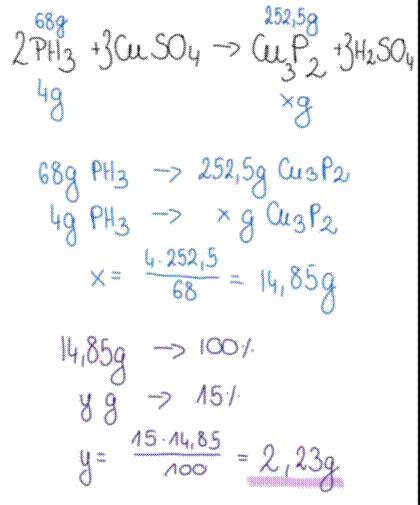 68g 252,5g
2PH3 + 3CuSO4 → Cu3P2 + 3H2SO4
4g xg
68g PH3 → 252,5g Cu3P2
4g PH3 → x g Cu3P2
x = 4·252,5 / 68 = 14,85g
14,85g → 100%
y g → 15%
y = 15·14,85 / 100 = 2,23g